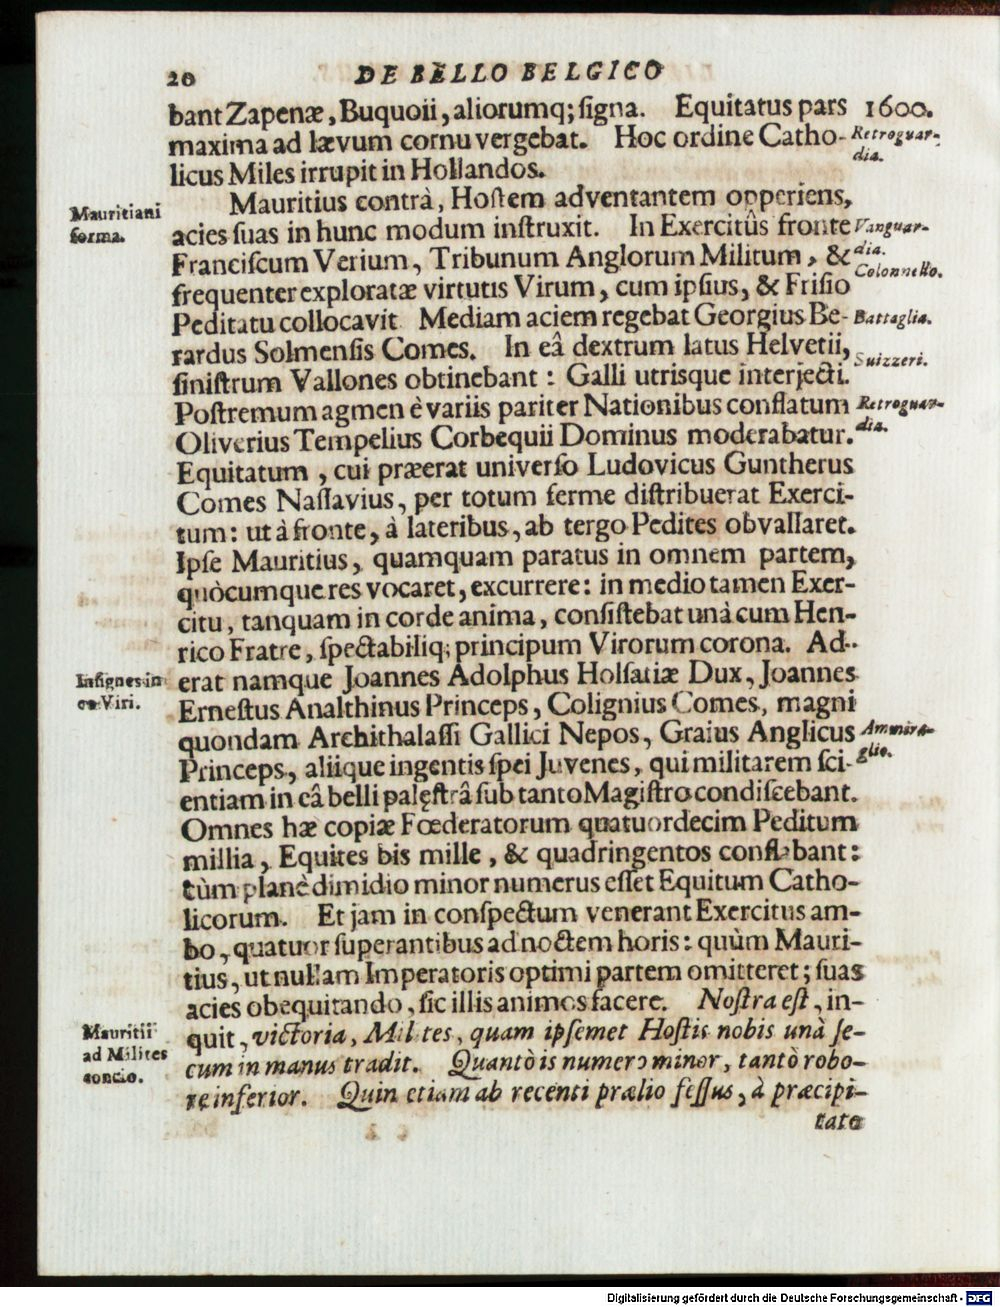 20 DE BELLO BELGICO
bant Zapenæ, Buquoii, aliorumq; ſigna. Equitatus pars 1600.
maxima ad lævum cornu vergebat. Hoc ordine Catho- Retroguar-
dia.
licus Miles irrupit in Hollandos.
Mauritiani
forma.
Mauritius contrà, Hoſtem adventantem opperiens,
acies ſuas in hunc modum inſtruxit. In Exercitûs fronte Vanguar-
dia.
Franciſcum Verium, Tribunum Anglorum Militum, &
Colonnello.
frequenter exploratæ virtutis Virum, cum ipſius, & Friſio
Peditatu collocavit Mediam aciem regebat Georgius Be- Battaglia.
rardus Solmenſis Comes. In eâ dextrum latus Helvetii,
Suizzeri.
ſiniſtrum Vallones obtinebant: Galli utrisque interjecti.
Poſtremum agmen è variis pariter Nationibus conflatum Retroguar-
dia.
Oliverius Tempelius Corbequii Dominus moderabatur.
Equitatum, cui præerat univerſo Ludovicus Guntherus
Comes Naſſavius, per totum ferme diſtribuerat Exerci-
tum: ut à fronte, à lateribus, ab tergo Pedites obvallaret.
Ipſe Mauritius, quamquam paratus in omnem partem,
quòcumque res vocaret, excurrere: in medio tamen Exer-
citu, tanquam in corde anima, conſiſtebat unà cum Hen-
rico Fratre, ſpectabiliq; principum Virorum corona. Ad-
Inſignes in
eo Viri.
erat namque Joannes Adolphus Holſatiæ Dux, Joannes
Erneſtus Analthinus Princeps, Colignius Comes, magni
quondam Archithalaſſi Gallici Nepos, Graius Anglicus Ammira-
glio.
Princeps, aliique ingentis ſpei Juvenes, qui militarem ſci-
entiam in eâ belli palęſtrâ ſub tanto Magiſtro condiſcebant.
Omnes hæ copiæ Fœderatorum quatuordecim Peditum
millia, Equites bis mille, & quadringentos conflabant:
tùm planè dimidio minor numerus eſſet Equitum Catho-
licorum. Et jam in conſpectum venerant Exercitus am-
bo, quatuor ſuperantibus ad noctem horis: quùm Mauri-
tius, ut nullam Imperatoris optimi partem omitteret; ſuas
acies obequitando, ſic illis animos facere. Noſtra eſt, in-
Mauritii
ad Milites
concio.
quit, victoria, Milites, quam ipſemet Hoſtis nobis unà ſe-
cum in manus tradit. Quantò is numero minor, tantò robo-
re inferior. Quin etiam ab recenti prælio feſſus, à præcipi-
tato
Digitalisierung gefördert durch die Deutsche Forschungsgemeinschaft - DFG